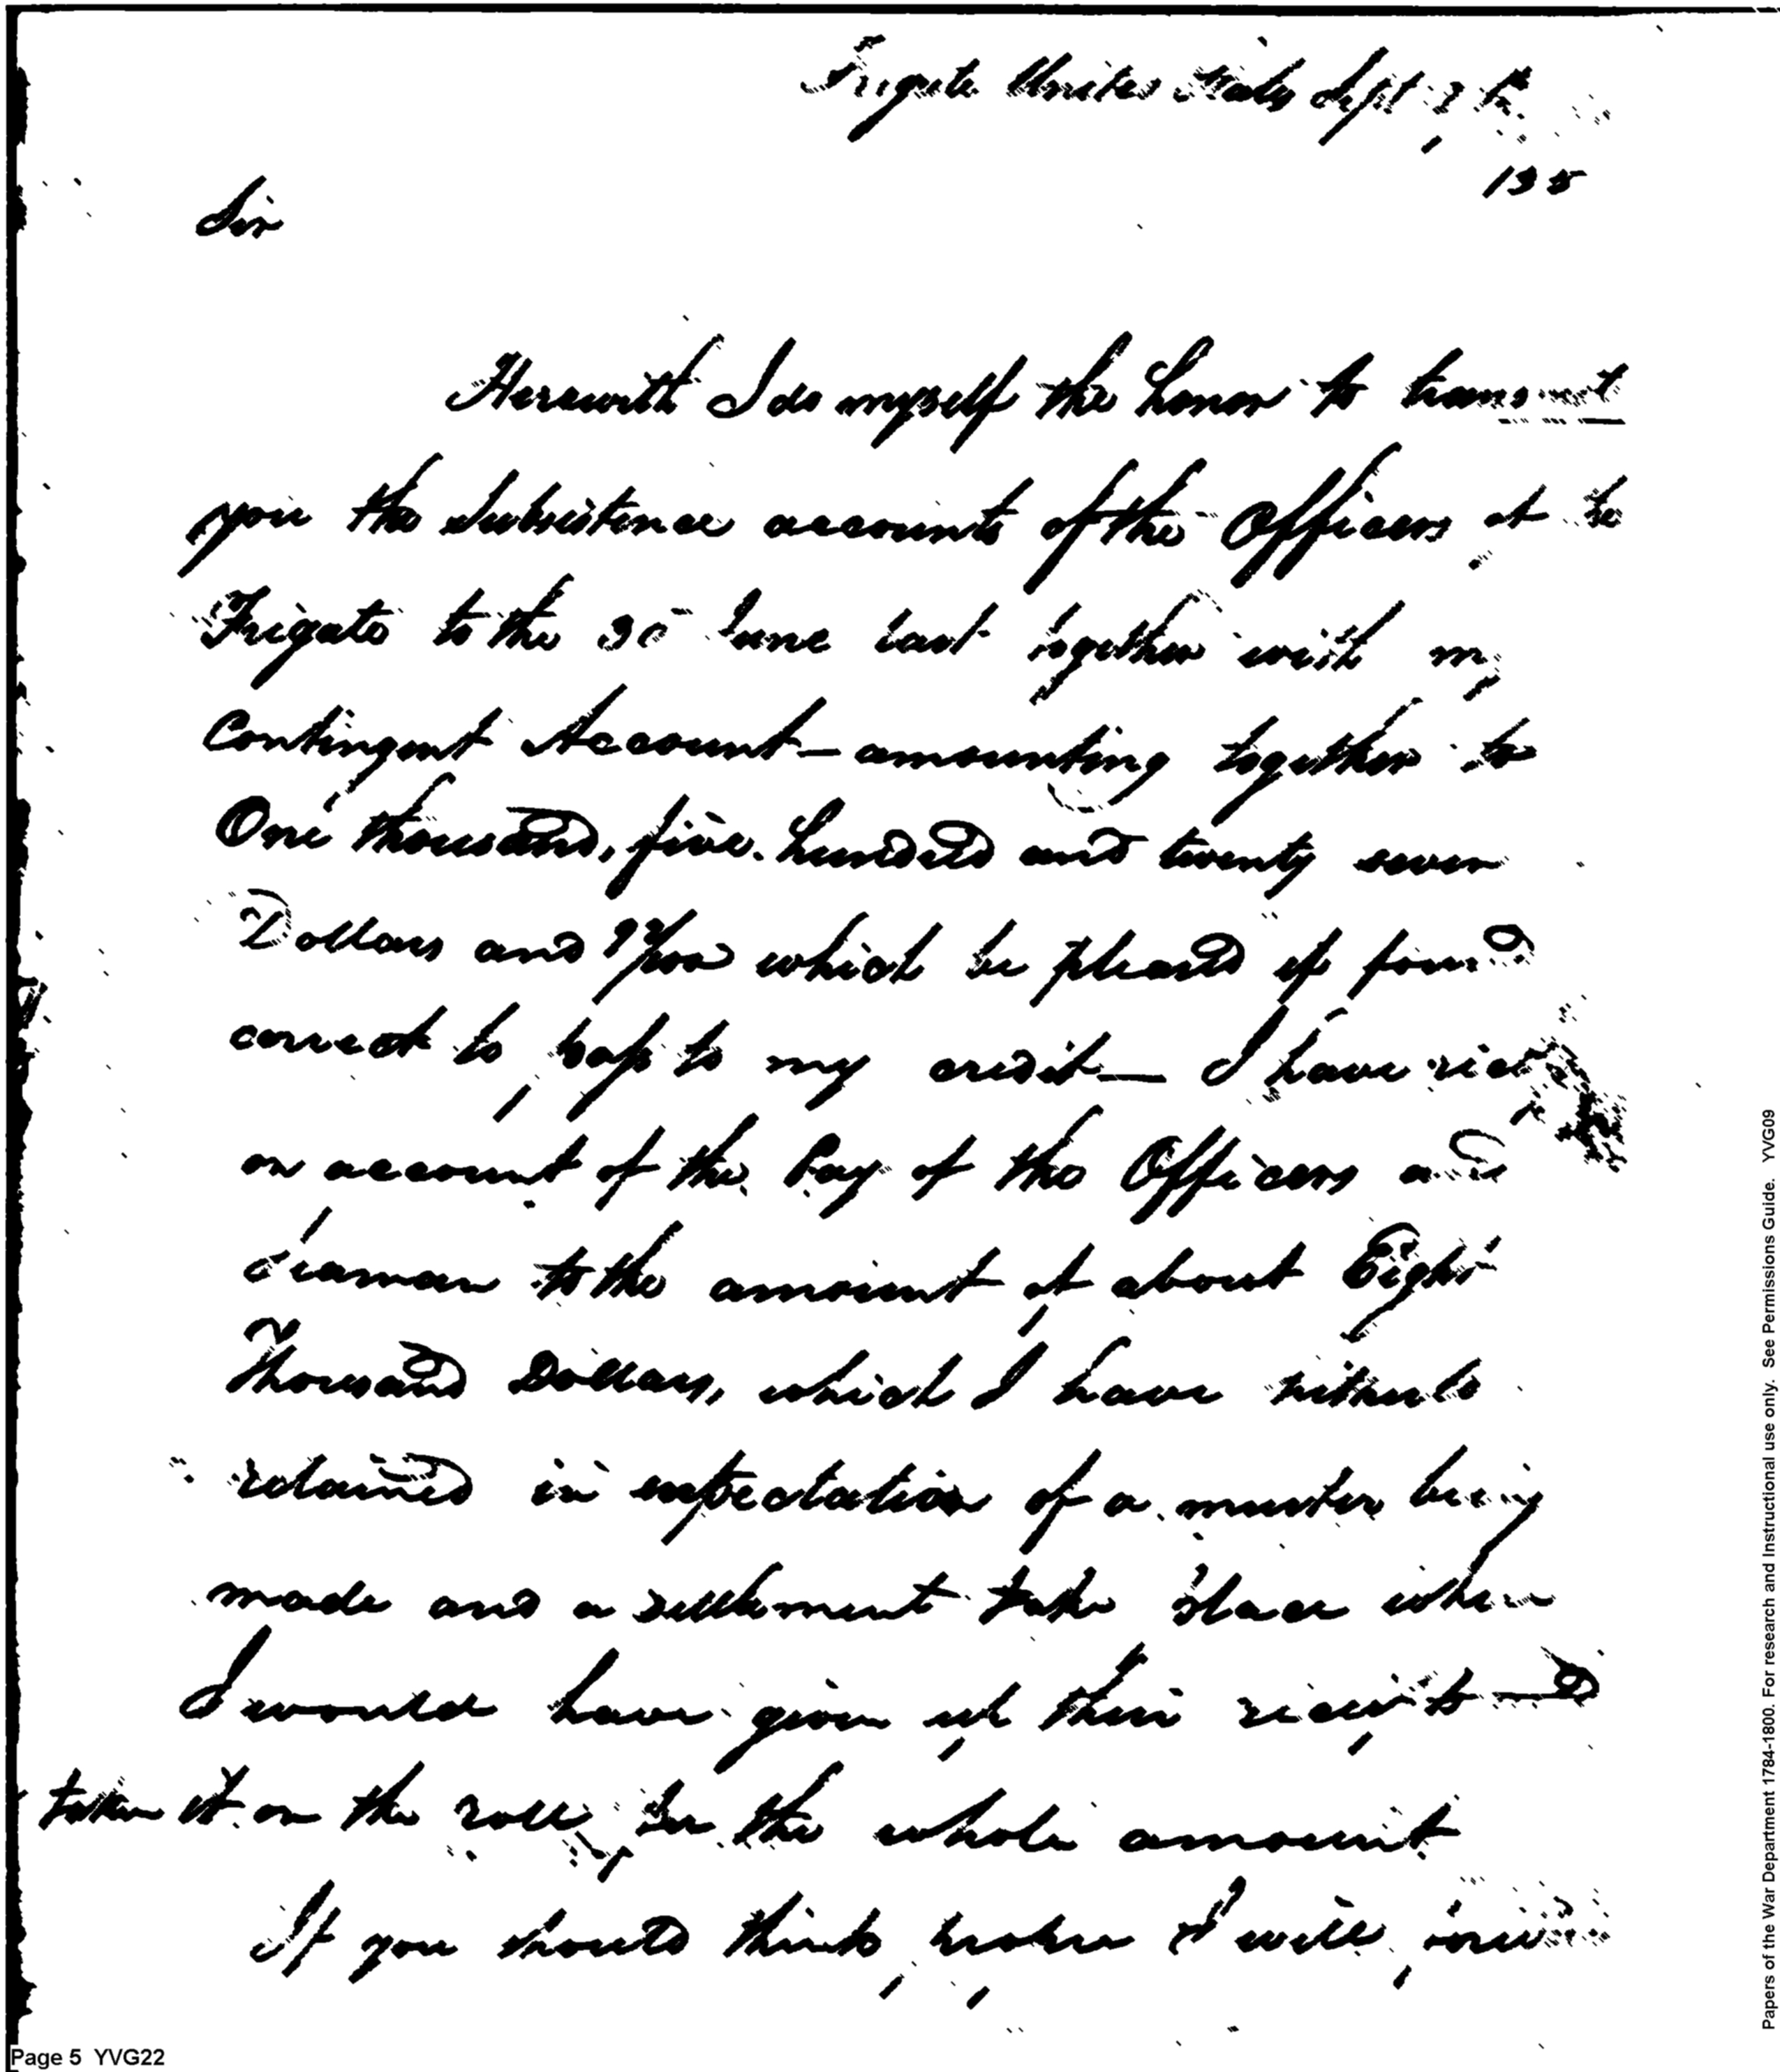 Frigate United States Sept
Sir
Herewith I do myself the honor to transmit
you the Subsistence accounts of the Officers of the
Frigate to the 30 June last together with my
Contingent Account - amounting together to
One thousand, five hundred and twenty seven
Dollars and which be pleased if found
correct to pass to my credit - I have
on account of the Pay of the Officers and
Seamen to the amount of about Eight
Thousand Dollars, which I have hitherto
retained in expectation of a muster being
made and a settlement take place when
I would have given up their receipts and
taken it on the roll for the whole amount
If you should think proper I will forward
Page 5 YVG22
Papers of the War Department 1784-1800. For research and Instructional use only. See Permissions Guide. YVG09